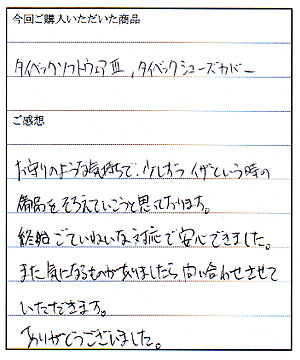 今回ご購入いただいた商品
タイベックソフトウェアⅢ, タイベックシューズカバー
ご感想
お守りのような気持ちで、少しずつイザという時の
備品をそろえていこうと思っております。
終始ごていねいな対応で安心できました。
また気になるものがありましたら、問い合わせさせて
いただきます。
ありがとうございました。